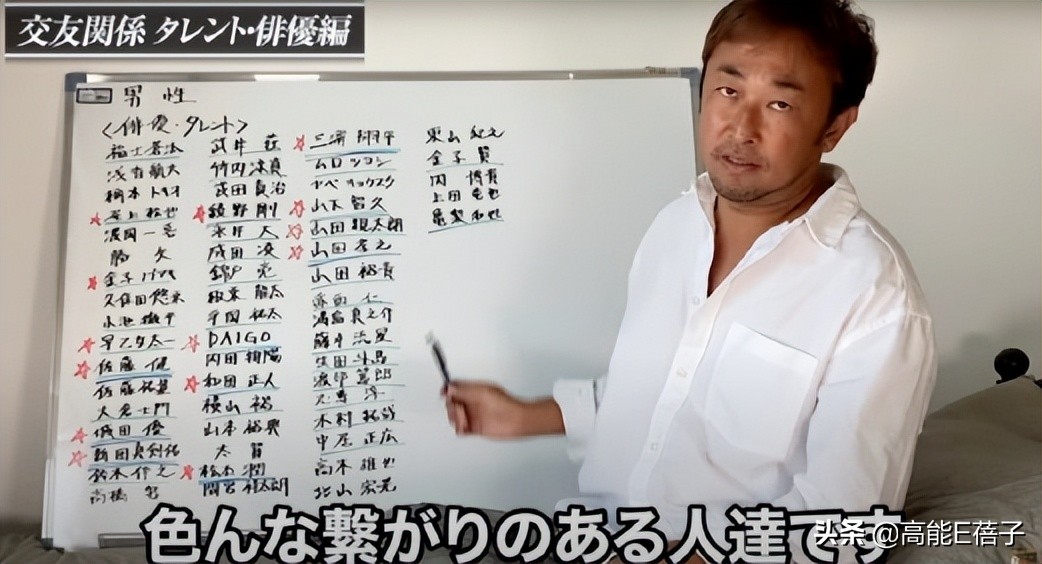 交友関係 タレント・俳優編
男性
<俳優・タレント>
福士蒼汰
浅香航大
柄本トキオ
尾上松也
波岡一喜
勝 矢
金子ノブアキ
久保田悠来
小池徹平
早乙女太一
佐藤 健
佐藤祐基
大倉士門
城田 優
新田真剣佑
鈴木伸之
高橋 努
武井 壮
竹内涼真
武田真治
綾野 剛
永井 大
成田 凌
錦戸 亮
平岡祐太
DAIGO
内田朝陽
和田正人
横山 裕
山本裕典
太 賀
松本 潤
間宮祥太朗
三浦翔平
ムロツヨシ
ヤベキョウスケ
山下智久
山田親太朗
山田孝之
山田裕貴
赤西 仁
満島真之介
藤井流星
生田斗真
渡部篤郎
木村拓哉
中居正広
高木雄也
北山宏光
東山紀之
金子 賢
内 博貴
上田竜也
亀梨和也
色んな繋がりのある人達です
头条 @高能E蓓子